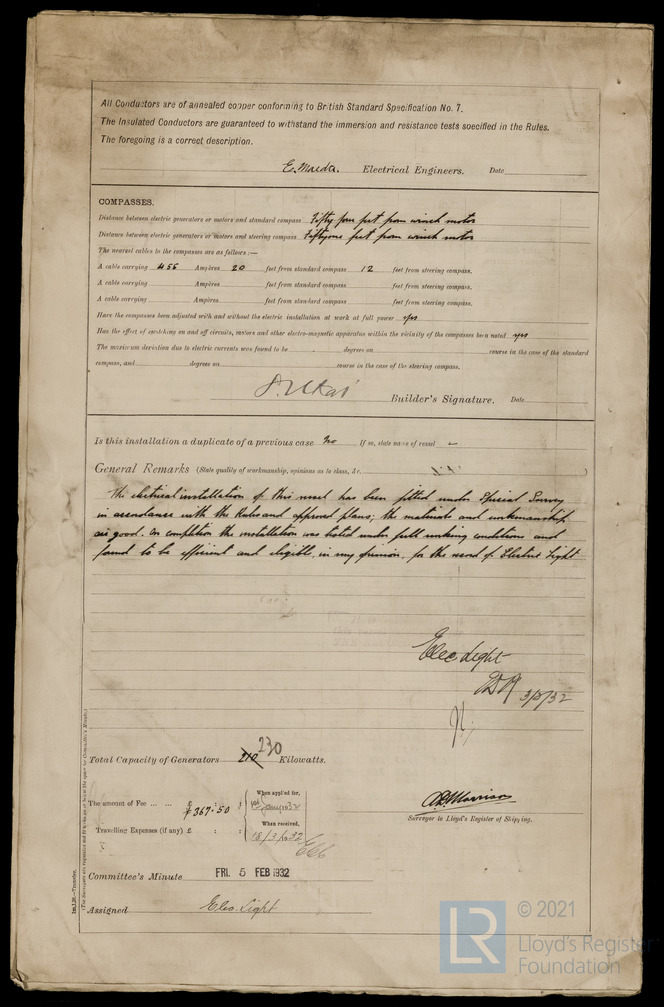 All Conductors are of annealed copper conforming to British Standard Specification No. 7.
The Insulated Conductors are guaranteed to withstand the immersion and resistance tests specified in the Rules.
The foregoing is a correct description.
E. Maeda. Electrical Engineers. Date
COMPASSES.
Distance between electric generators or motors and standard compass Fifty four feet from winch motor
Distance between electric generators or motors and steering compass Fifty one feet from winch motor
The nearest cables to the compasses are as follows:—
A cable carrying 4.56 Ampères 20 feet from standard compass 12 feet from steering compass.
A cable carrying Ampères feet from standard compass feet from steering compass.
A cable carrying Ampères feet from standard compass feet from steering compass.
Have the compasses been adjusted with and without the electric installation at work at full power yes
Has the effect of switching on and off circuits, motors and other electro-magnetic apparatus within the vicinity of the compasses been noted yes
The maximum deviation due to electric currents was found to be degrees on course in the case of the standard
compass, and degrees on course in the case of the steering compass.
Builder's Signature. Date
Is this installation a duplicate of a previous case No If so, state name of vessel -
General Remarks (State quality of workmanship, opinions as to class, &c.
The electrical installation of this vessel has been fitted under Special Survey
in accordance with the Rules and approved plans; the materials and workmanship
are good. On completion the installation was tested under full working conditions and
found to be efficient and eligible, in my opinion, for the record of Electric Light
Elec Light
3/2/32
Total Capacity of Generators 210 230 Kilowatts.
The amount of Fee ... ... £ ¥ 367 : 50 :
When applied for,
Travelling Expenses (if any) £ : :
When received,
18/3/1932
A.D. Morrison
Surveyor to Lloyd's Register of Shipping.
Committee's Minute FRI. 5 FEB 1932
Assigned Elec. Light
© 2021
LR
Lloyd's Register
Foundation